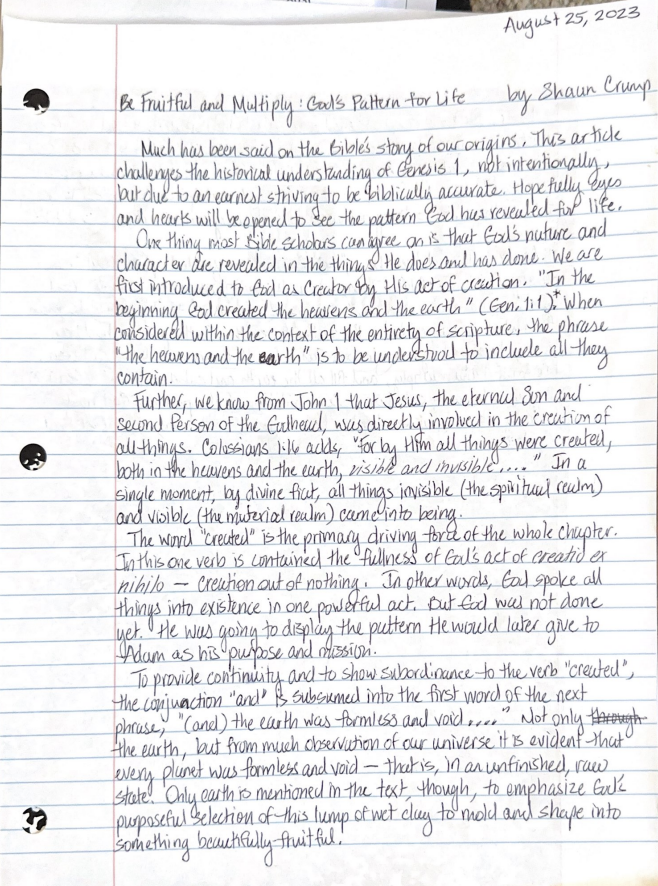 August 25, 2023
Be Fruitful and Multiply: God's Pattern for Life by Shaun Crump
Much has been said on the Bible's story of our origins. This article
challenges the historical understanding of Genesis 1, not intentionally,
but due to an earnest striving to be biblically accurate. Hopefully eyes
and hearts will be opened to see the pattern God has revealed for life.
One thing most Bible scholars can agree on is that God's nature and
character are revealed in the things He does and has done. We are
first introduced to God as Creator by His act of creation. "In the
beginning God created the heavens and the earth" (Gen. 1:1).* When
considered within the context of the entirety of scripture, the phrase
"the heavens and the earth" is to be understood to include all they
contain.
Further, we know from John 1 that Jesus, the eternal Son and
second Person of the Godhead, was directly involved in the creation of
all things. Colossians 1:16 adds, "for by Him all things were created,
both in the heavens and the earth, visible and invisible...." In a
single moment, by divine fiat, all things invisible (the spiritual realm)
and visible (the material realm) came into being.
The word "created" is the primary driving force of the whole chapter.
In this one verb is contained the fullness of God's act of creatio ex
nihilo — creation out of nothing. In other words, God spoke all
things into existence in one powerful act. But God was not done
yet. He was going to display the pattern He would later give to
Adam as his purpose and mission.
To provide continuity and to show subordinance to the verb "created",
the conjunction "and" is subsumed into the first word of the next
phrase, "(and) the earth was formless and void...." Not only through
the earth, but from much observation of our universe it is evident that
every planet was formless and void — that is, in an unfinished, raw
state. Only earth is mentioned in the text, though, to emphasize God's
purposeful selection of this lump of wet clay to mold and shape into
something beautifully fruitful.